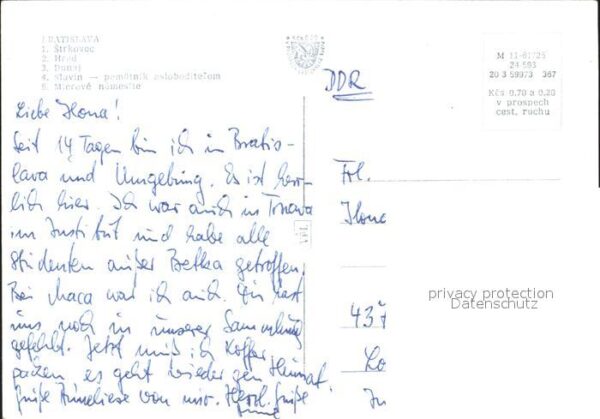 BRATISLAVA
1. Štrkovec
2. Hrad
3. Dunaj
4. Slavín — pamätník osloboditeľom
5. Mierové námestie
M 11-01/26
24 593
20 3 59973 367
Kčs 0,70 a 0,20
v prospech
cest. ruchu
DDR
Liebe Ilona!
Seit 14 Tagen bin ich in Bratis-
lava und Umgebung. Es ist herr-
lich hier. Ich war auch in Trnava
im Institut und habe alle
Studenten außer Betka getroffen.
Bei Maca war ich auch. Du hast
uns noch in unserer Sammlung
gefehlt. Jetzt muß ich Koffer
packen es geht wieder gen Heimat.
Grüße Anneliese von mir. Herzl. Grüße
Frl.
Ilona
437
In
privacy protection
Datenschutz